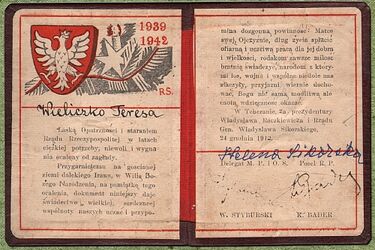 1939
1942
R.S.
Wieliczko Teresa
Łaską Opatrzności i staraniem
Rządu Rzeczypospolitej w latach
ciężkiej potrzeby, niewoli i wygna-
nia ocaleny od zagłady.
Przygarniętemu na gościnnej
ziemi dalekiego Iranu, w Wilię Bo-
żego Narodzenia, na pamiątkę tego
ocalenia, dokument niniejszy daję
świadectwo wielkiej, serdecznej
wspólnoty naszych uczuć i przypo-
mina dozgonną powinność: Matce
swej, Ojczyźnie, dług życia spłacić
ofiarną i uczciwą pracą dla jej dobra
i wielkości, rodakom zawsze miłość
bratnią świadczyć, narodom, z który-
mi los, wojna i wspólne niedole nas
złączyły, przyjaźni wiernie docho-
wać, Bogu nieść samą, modlitwę
oną, wdzięczność okazać.
W Teheranie, za prezydentury
Władysława Raczkiewicza i Rządu
Gen. Władysława Sikorskiego,
24 grudnia 1942
Helena Sikorska
Delegat M. P. i O. S. Poseł R.P.
W. STYBURSKI K. BADER